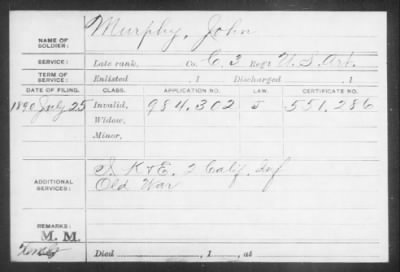 NAME OF SOLDIER: Murphy, John
SERVICE: Late rank, Co. C. 3 Reg't U.S. Art.
TERM OF SERVICE: Enlisted , 1 Discharged , 1
DATE OF FILING. CLASS. APPLICATION NO. LAW. CERTIFICATE NO.
1890 July 25 Invalid, 984,302 J 551,286
Widow,
Minor,
ADDITIONAL SERVICES: K & E. 2 Calif. Inf
Old War
REMARKS:
M. M.
Died , 1 , at